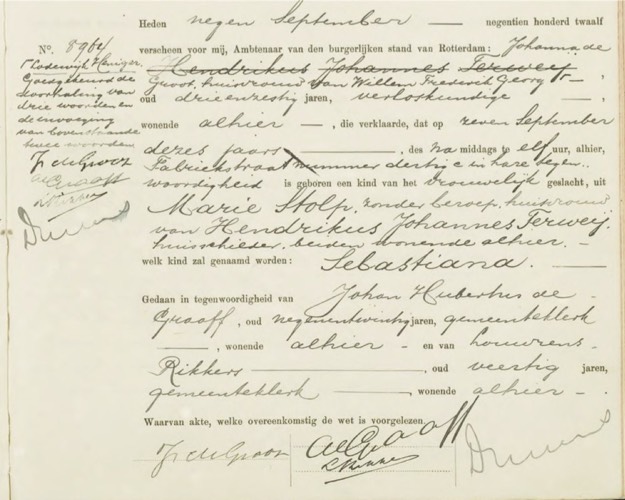 Heden negen September negentien honderd twaalf
N°. 8964
verscheen voor mij, Ambtenaar van den burgerlijken stand van Rotterdam: Johanna de
Hendrikus Johannes Terweij
Groot, huisvrouw van Willem Frederik Georg
oud drieenzestig jaren, verloskundige,
wonende alhier, die verklaarde, dat op zeven September
dezes jaars, des na middags te elf uur, alhier,
Fabriekstraat nummer dertig c in hare tegen-
woordigheid is geboren een kind van het vrouwelijk geslacht, uit
Marie Stolp, zonder beroep, huisvrouw
van Hendrikus Johannes Terweij,
huisschilder, beiden wonende alhier.
welk kind zal genaamd worden: Sebastiana.
Lodewijk
Goedgekeurd de
doorhaling van
drie woorden en
de invoeging
van bovenstaande
twee woorden
J. de Groot
de Graaff
LRikkers
Gedaan in tegenwoordigheid van Johan Hubertus de
Graaff, oud negenentwintig jaren, gemeenteklerk
, wonende alhier en van Louwrens
Rikkers, oud veertig jaren,
gemeenteklerk, wonende alhier.
Waarvan akte, welke overeenkomstig de wet is voorgelezen.
J. de Groot de Graaff
LRikkers